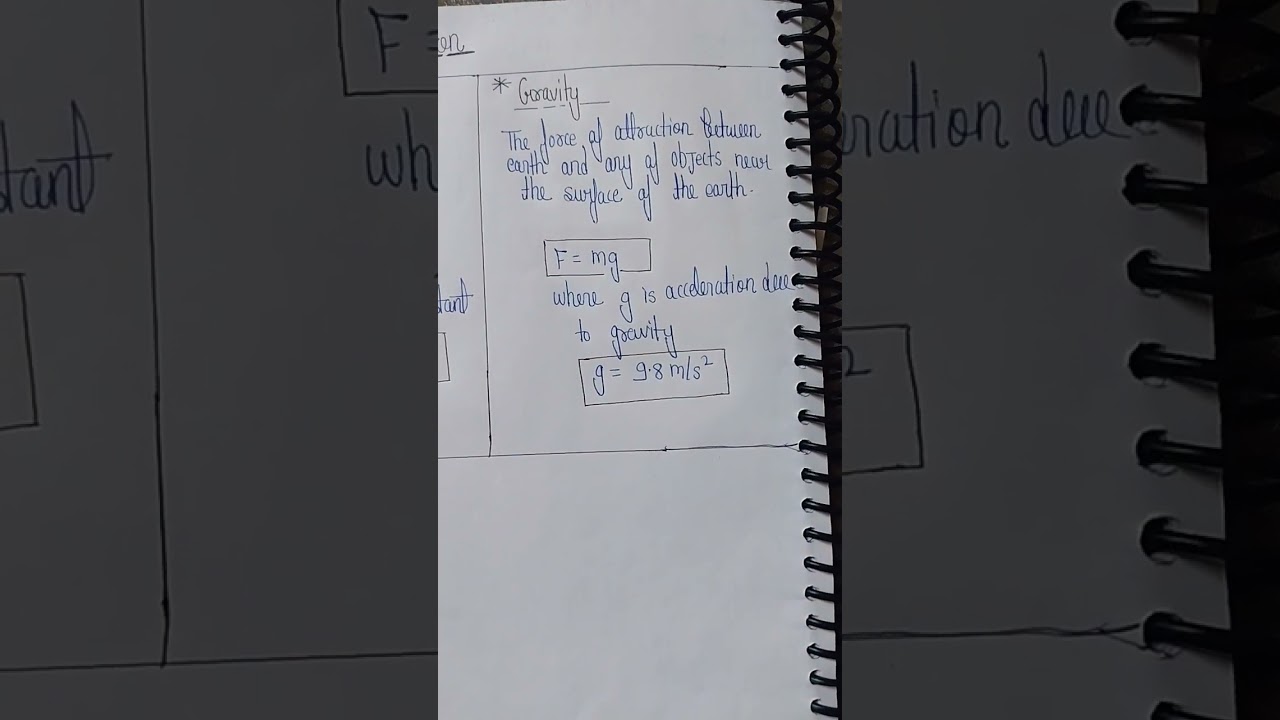 on
* Gravity
The force of attraction between
earth and any of objects near
the surface of the earth.
F = mg
where g is acceleration due
to gravity
g = 9.8 m/s²
tant
F =
wh
tant
eration due
2